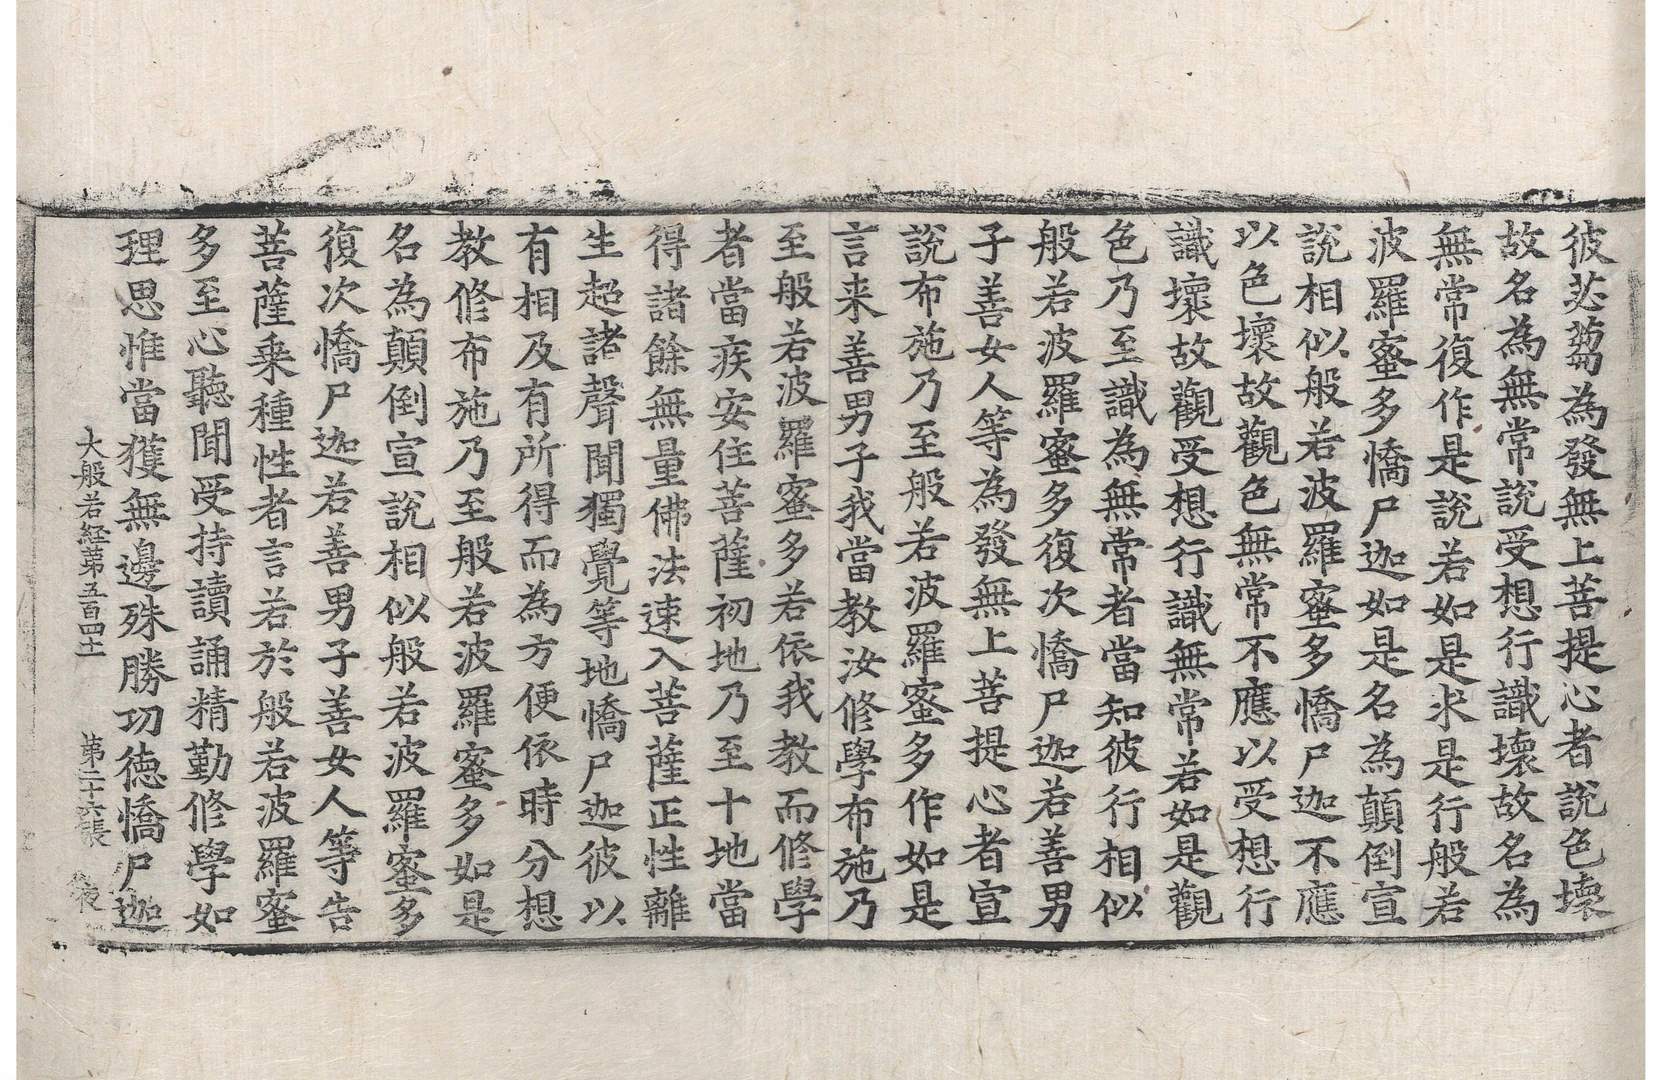 彼苾蒭為發無上菩提心者說色壞
故名為無常說受想行識壞故名為
無常復作是說若如是求是行般若
波羅蜜多憍尸迦如是名為顛倒宣
說相似般若波羅蜜多憍尸迦不應
以色壞故觀色無常不應以受想行
識壞故觀受想行識無常若如是觀
色乃至識為無常者當知彼行相似
般若波羅蜜多復次憍尸迦若善男
子善女人等為發無上菩提心者宣
說布施乃至般若波羅蜜多作如是
言来善男子我當教汝修學布施乃
至般若波羅蜜多若依我教而修學
者當疾安住菩薩初地乃至十地當
得諸餘無量佛法速入菩薩正性離
生超諸聲聞獨覺等地憍尸迦彼以
有相及有所得而為方便依時分想
教修布施乃至般若波羅蜜多如是
名為顛倒宣說相似般若波羅蜜多
復次憍尸迦若善男子善女人等告
菩薩乗種性者言若於般若波羅蜜
多至心聽聞受持讀誦精勤修學如
理思惟當獲無邊殊勝功德憍尸迦
大般若経第五百四十　第二十六張　夜